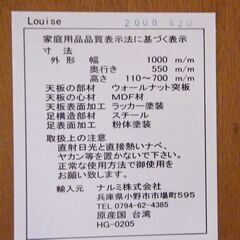 Louise
2008 4.20
家庭用品品質表示法に基づく表示
寸 法
外 形 幅 1000 m/m
奥行き 550 m/m
高さ 110~700 m/m
天板の部材 ウォールナット突板
天板の心材 MDF材
天板表面加工 ラッカー塗装
足構造部材 スチール
足表面加工 粉体塗装
取扱上の注意
直射日光と直接熱いナベ、
ヤカン等を置かないで下さい。
正常な使用方法で御使用を
お願い致します。
輸入元 ナルミ株式会社
兵庫県小野市市場町595
TEL 0794-62-4385
原産国 台湾
HG-0205